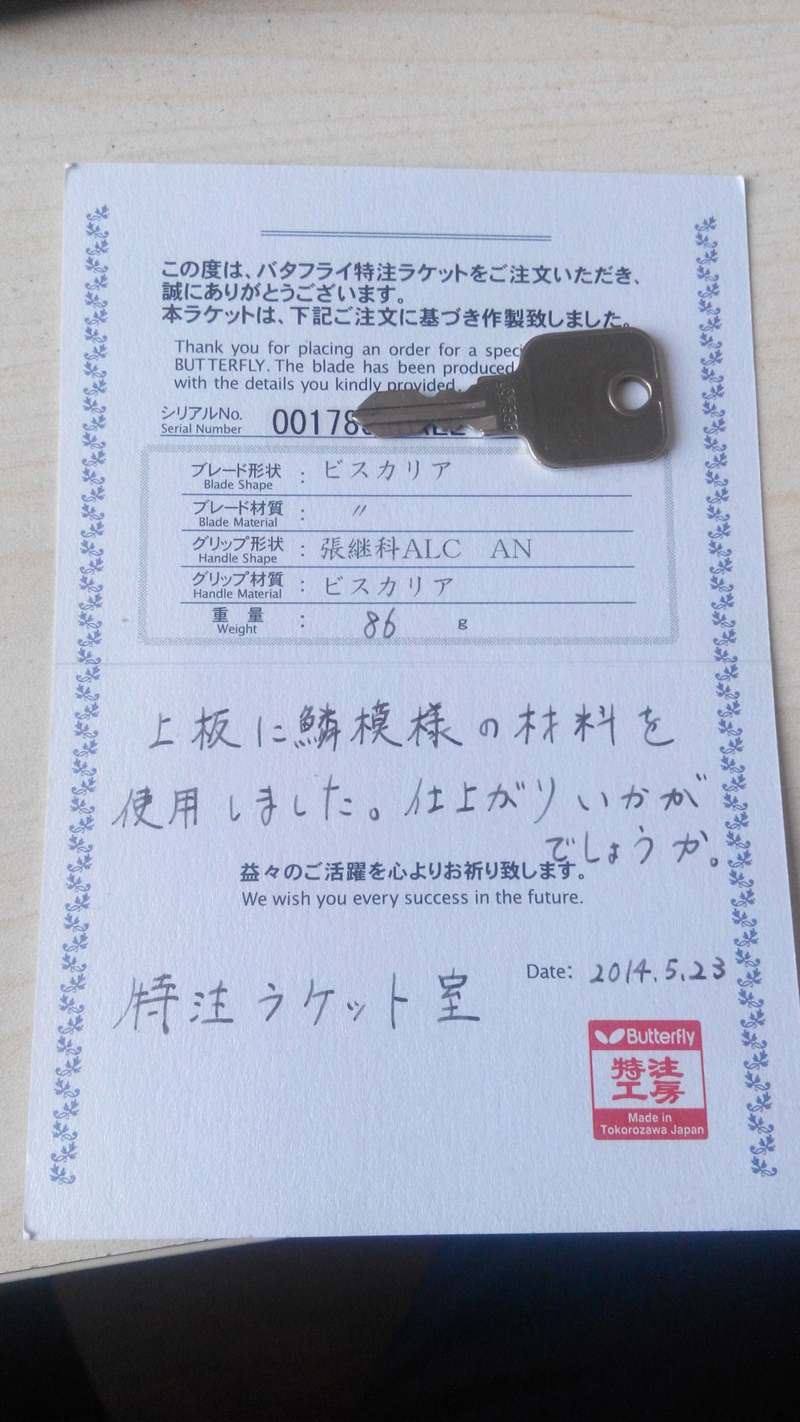 この度は、バタフライ特注ラケットをご注文いただき、
誠にありがとうございます。
本ラケットは、下記ご注文に基づき作製致しました。
Thank you for placing an order for a
BUTTERFLY. The blade has been produced
with the details you kindly provided.
シリアルNo.
Serial Number 00178
ブレード形状 : ビスカリア
Blade Shape
ブレード材質 : 〃
Blade Material
グリップ形状 : 張継科ALC AN
Handle Shape
グリップ材質 : ビスカリア
Handle Material
重量 : 86 g
Weight
上板に鱗模様の材料を
使用しました。仕上がりいかが
でしょうか。
益々のご活躍を心よりお祈り致します。
We wish you every success in the future.
Date: 2014.5.23
特注ラケット室
Butterfly
特注
工房
Made in
Tokorozawa Japan